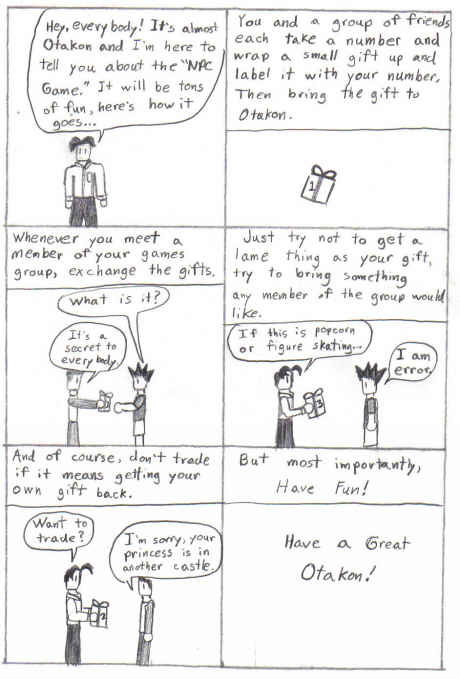 Hey, everybody! It's almost
Otakon and I'm here to
tell you about the "NPC
Game." It will be tons
of fun, here's how it
goes...
You and a group of friends
each take a number and
wrap a small gift up and
label it with your number.
Then bring the gift to
Otakon.
1
Whenever you meet a
member of your games
group, exchange the gifts.
What is it?
It's a
secret to
everybody
Just try not to get a
lame thing as your gift,
try to bring something
any member of the group would
like.
If this is popcorn
or figure skating...
I am
error.
3
And of course, don't trade
if it means getting your
own gift back.
Want to
trade?
I'm sorry, your
princess is in
another castle.
2
But most importantly,
Have Fun!
Have a Great
Otakon!